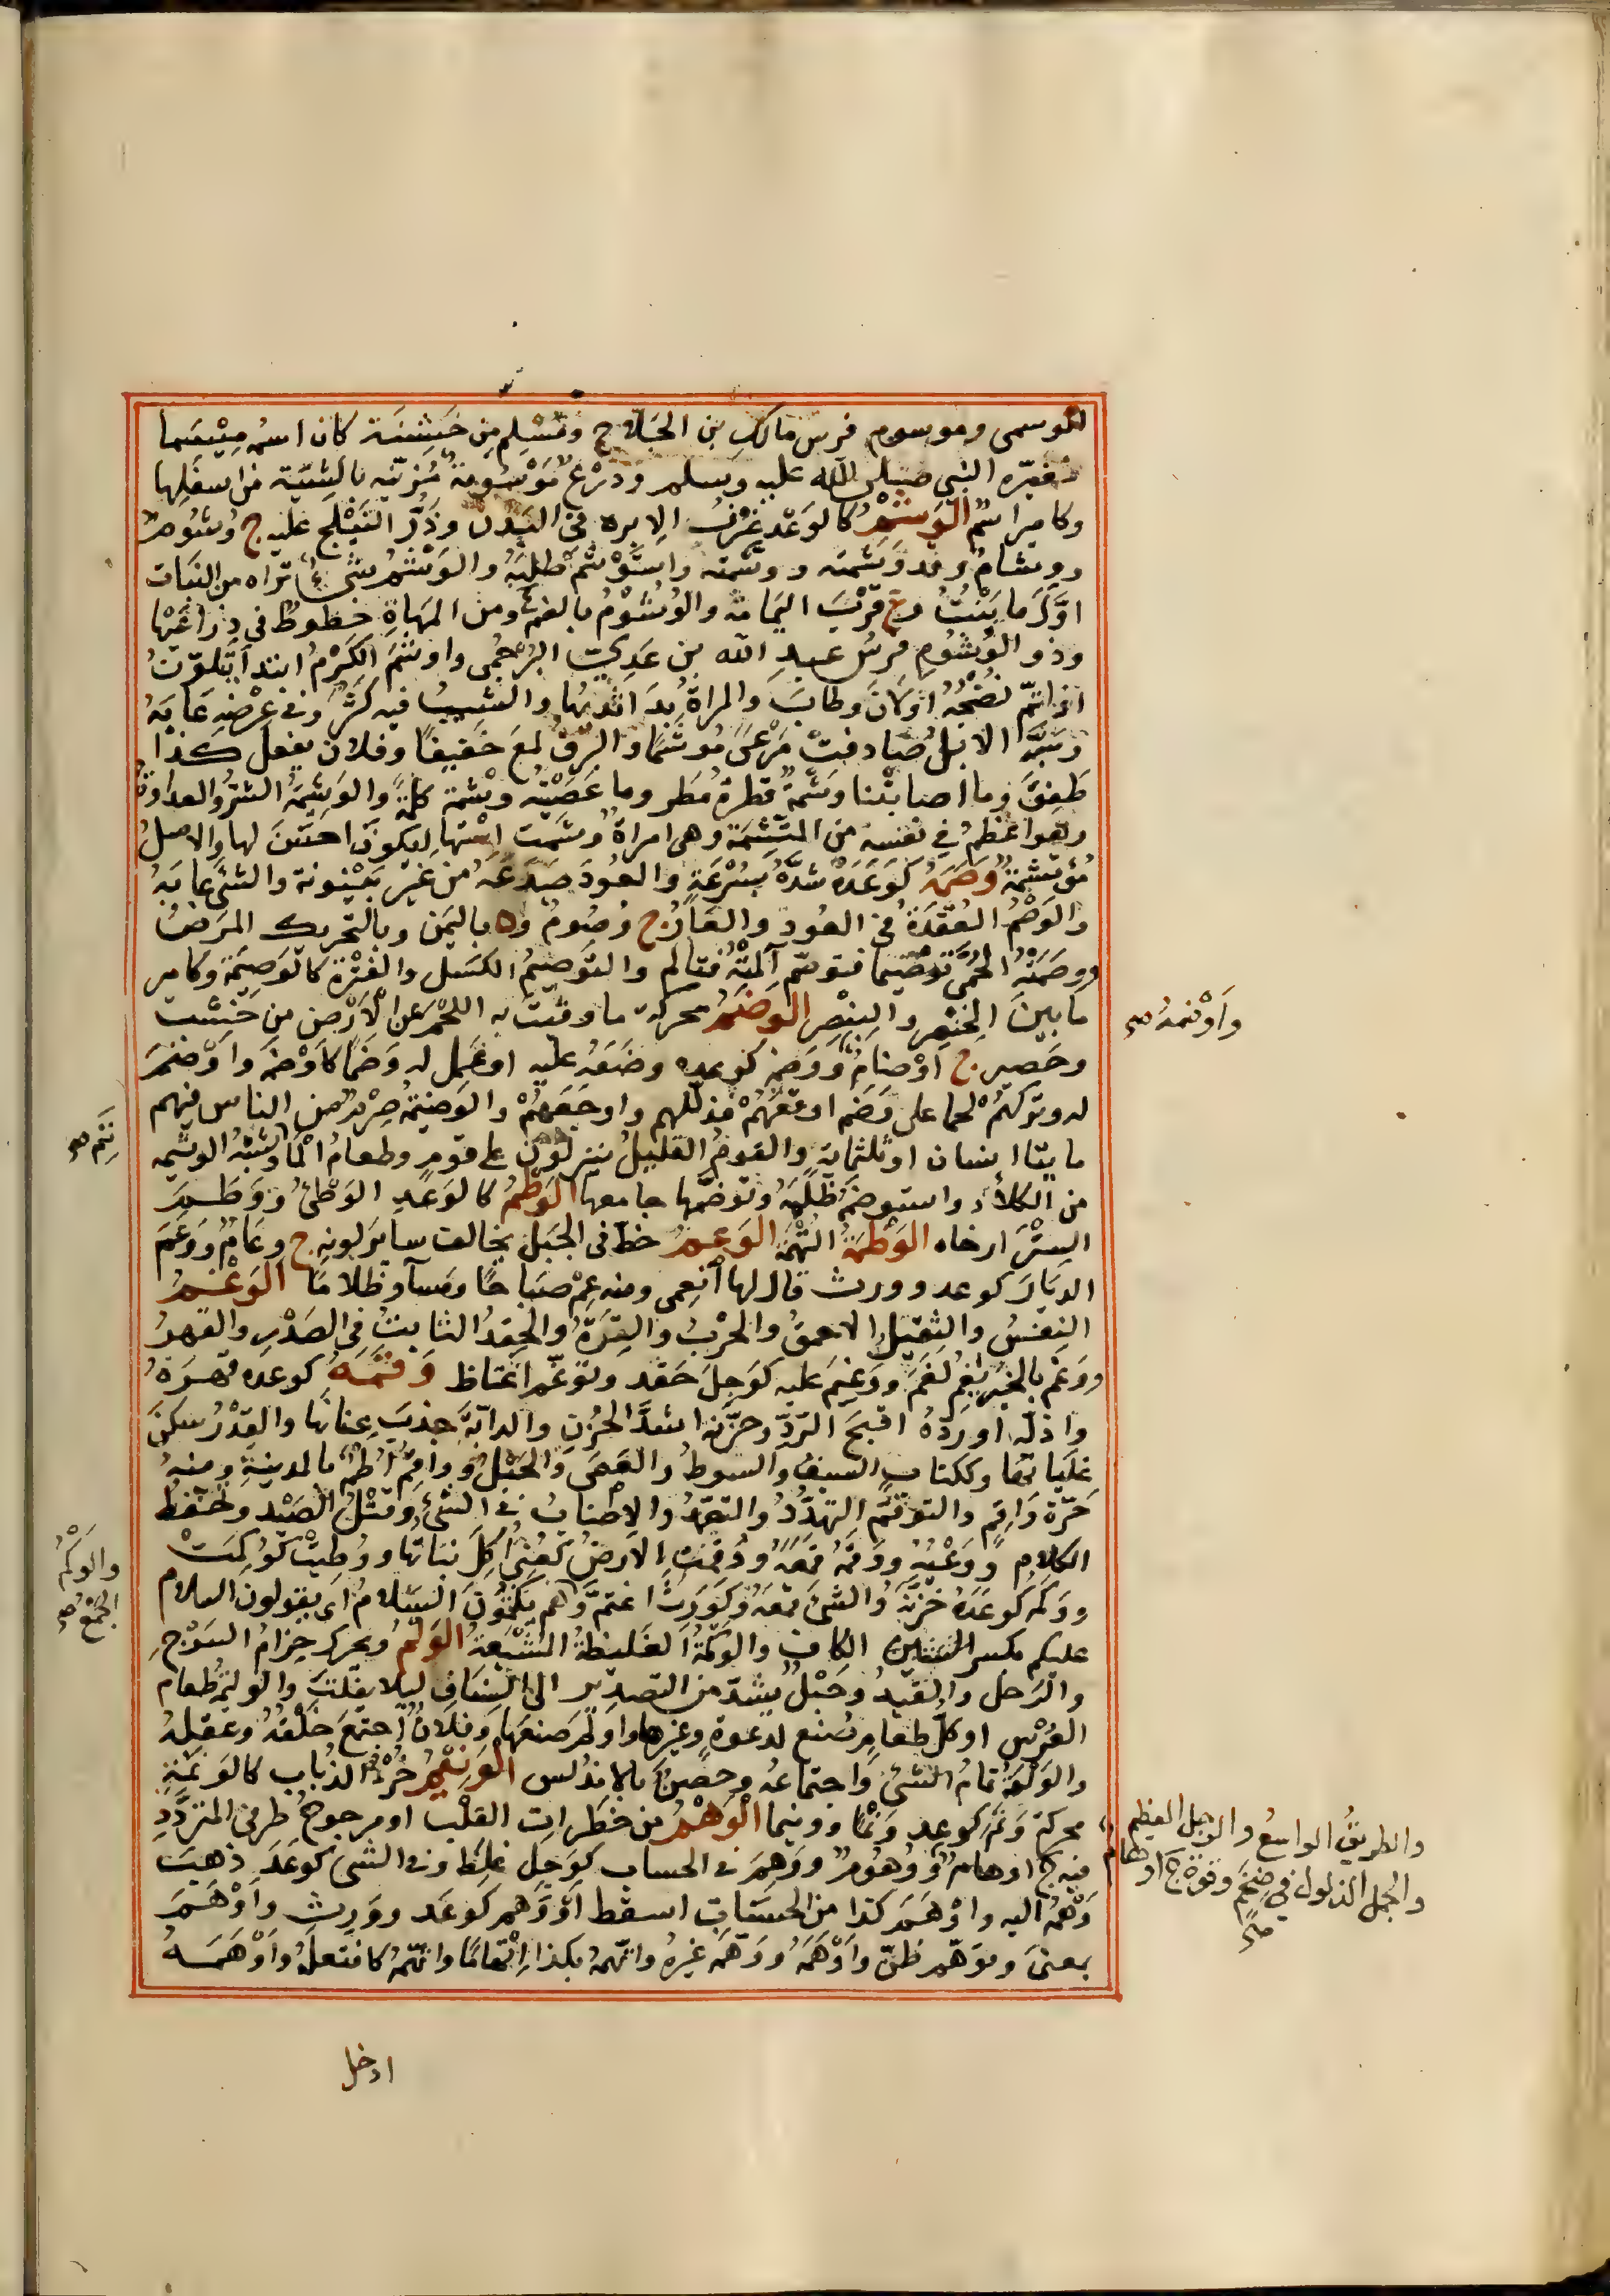 لموسمى وموسوم فرس مالك بن الجلاح ومسلم بن خيشنة كان اسمه ميسما
فغيره النبي صلى الله عليه وسلم ودرع موسومة مزينة بالشية من اسفلها
وكامير اسم الوشم كالوعد غرز الابره في البدن وذر النيلج عليه ج وشوم
ووشام وقد وشمته ووشمته واستوشم طلبه والوشم شىء تراه من النبات
اول ما ينبت و ع قرب اليمامة والوشوم بالضم ع ومن المهاة خطوط في ذراعيها
وذو الوشوم فرس عبد الله بن عدي البرجمى واوشم الكرم ابتدا يتلون
او اتم نضجه او لان وطاب والمراة بدا ثديها والشيب فيه كثر وفي عرضه عابه
وسبه الابل صادفت مرعى موشما والبرق لمع خفيفا وفلان يفعل كذا
طفق وما اصابتنا وشمة قطرة مطر وما عصيته وشمة كلمة والوشيمة الشر والعداوة
وهو اعظم في نفسه من المتشمة وهى امراة وشمت استها ليكون احسن لها والاصل
موتشمة وصمه كوعده شده بسرعة والعود صدعه من غير بينونة والشئ عابه
والوصم العقدة في العود والعار ج وصوم و د باليمن وبالتحريك المرض
ووصمته الحمى توصيما فتوصم آلمته فتالم والتوصيم الكسل والفترة كالوصيمة وكامير
ما بين الخنصر والبنصر الوضم محركة ما وقيت به اللحم عن الارض من خشب
وحصير ج اوضام ووضمه كوعده وضعه عليه او عمل له وضما كاوضمه واوضم
له وتركهم لحما على وضم اوقعهم فذللهم واوجعهم والوضيمة صرم من الناس فيهم
مايتا انسان او ثلثماية والقوم القليل ينزلون على قوم وطعام الماتم وشبه الوشيمة
من الكلأ واستوضمه ظلمه وتوضمها جامعها الوطم كالوعد الوطئ ووطم
الستر ارخاه الوظمة التهمة الوعم خط في الجبل يخالف ساير لونه ج وعام ووعم
الديار كوعد وورث قال لها انعمى ومنه عم صباحا ومسآ وظلاما الوغم
النفس والثقيل الاحمق والحرب والترة والحقد الثابت في الصدر والقهر
ووغم بالخبر يغم لغم ووغم عليه كوجل حقد وتوغم اغتاظ وقمه كوعده قهره
واذله او رده اقبح الرد وحزنه اشد الحزن والدابة جذب عنانها والقدر سكن
غليانها وككتاب السيف والسوط والعصى والحبل وواقم اطم بالمدينة ومنه
حرة واقم والتوقم التهدد والتعمد والاطناب في الشئ وقتل الصيد وتحفظ
الكلام ووعيه ووقمه قمعه ووقمت الارض كعنى اكل نباتها ووطيت كوكمت
ووكمه كوعده حزنه والشئ قمعه وكورث اغتم وهم يكمون السلام اى يقولون السلام
عليكم بكسر الكاف والوكمة الغليظة المشبعة الولم ويحرك حزام السرج
والرحل والقيد وحبل يشد من التصدير الى السناف ليلا يقلقا والوليمة طعام
العرس او كل طعام صنع لدعوة وغيرها واولم صنعها وفلان اجتمع خلقه وعقله
والولمة تمام الشئ واجتماعه وحصن بالاندلس الونيم خرء الذباب كالونمة
محركة ونم كوعد ونما وونيما الوهم من خطرات القلب او مرجوح طرفي المتردد
فيه ج اوهام ووهوم ووهم في الحساب كوجل غلط وفي الشئ كوعد ذهب
وهمه اليه واوهم كذا من الحساب اسقط او وهم كوعد وورث واوهم
بمعنى وتوهم ظن واوهمه ووهمه غيره واتهمه بكذا اتهاما واتهمه كافتعله واوهمه
واوتمه صح
ننم صح
والوكم
الجمع صح
والطريق الواسع والرجل العظيم
والجمل الذلول في ضخم وقوة ج اوهام
صح
ادخل